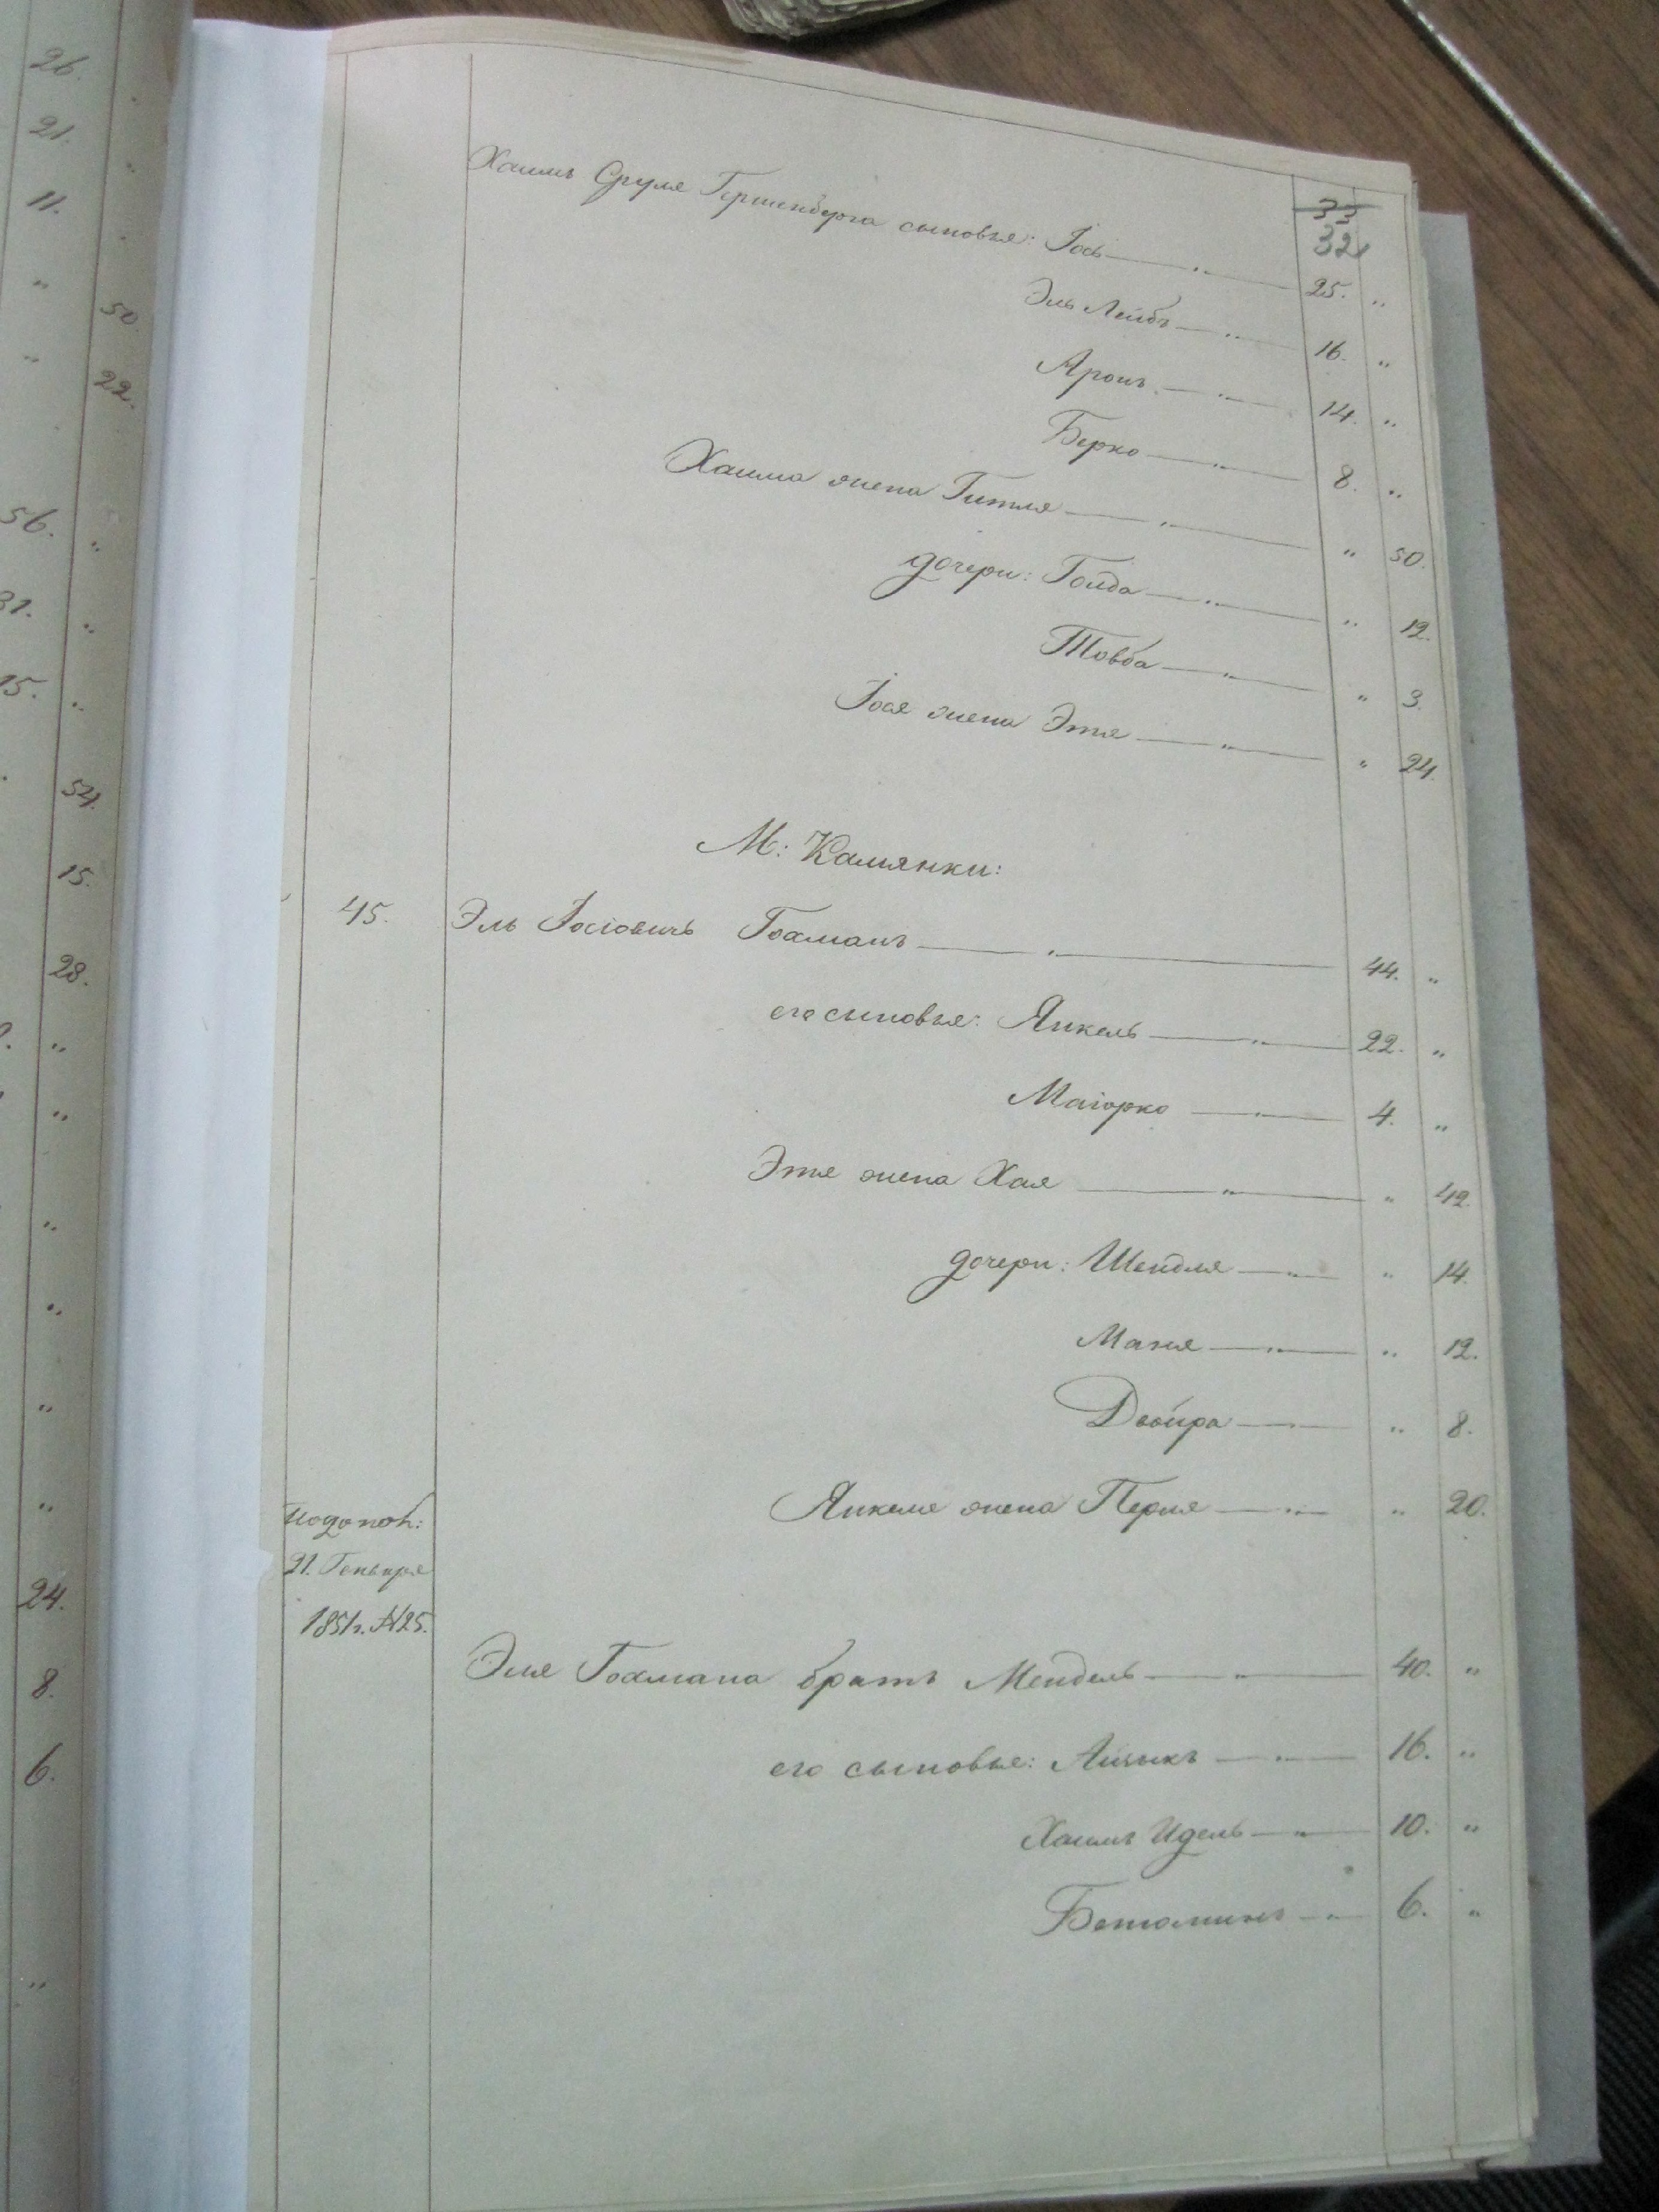 26.
21.
11.
" 50
" 22.
56. "
31. "
15. "
54.
15.
28.
"
"
"
"
"
"
24.
8.
6.
"
33
32
Хаимъ Сруля Гершенберга сыновья: Іось — " — 25. "
Эль Лейбъ — " — 16. "
Аронъ — " — 14. "
Берко — " — 8. "
Хаима жена Гитля — " — " 50.
дочери: Голда — " — " 12.
Товба — " — " 3.
Іося жена Этя — " — " 24.
М: Камянки:
45. Эль Іосіовичъ Гохманъ — " — 44. "
его сыновья: Янкель — " — 22. "
Маіорко — " — 4. "
Эля жена Хая — " — " 42.
дочери: Шендля — " — " 14.
Маня — " — " 12.
Двойра — " — " 8.
Янкеля жена Перля — " — " 20.
21. Генваря
1851г. №25.
Эля Гохмана братъ Мендель — " — 40. "
его сыновья: Айзыкъ — " — 16. "
Хаимъ Идель — " — 10. "
Беніоминъ — " — 6. "